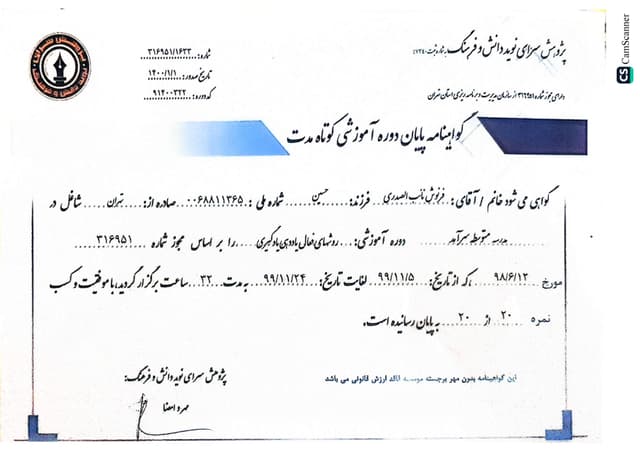 پژوهش سرای نوید دانش و فرهنگ
دارای مجوز شماره ۳۱۶۹۵۱ از سازمان مدیریت و برنامه ریزی استان تهران
شماره: ۳۱۶۹۵۱/۱۶۳۳
تاریخ صدور: ۱۴۰۰/۱/۱
کد دوره: ۹۱۴۰۰۳۲۲
گواهینامه پایان دوره آموزشی کوتاه مدت
گواهی می شود خانم / آقای: فرنوش نائب الصدری فرزند: حسین شماره ملی: ۰۰۶۸۸۱۱۳۶۵ صادره از: تهران شاغل در
مدرسه متوسطه سرآمد دوره آموزشی: روشهای فعال یاددهی یادگیری را بر اساس مجوز شماره ۳۱۶۹۵۱
مورخ ۹۸/۶/۱۲ که از تاریخ: ۹۹/۱۱/۵ لغایت تاریخ: ۹۹/۱۱/۲۴ به مدت ۳۲ ساعت برگزار گردید، با موفقیت و کسب
نمره ۲۰ از ۲۰ به پایان رسانیده است.
این گواهینامه بدون مهر برجسته موسسه فاقد ارزش قانونی می باشد
پژوهش سرای نوید دانش و فرهنگ:
مهر و امضا
CS CamScanner